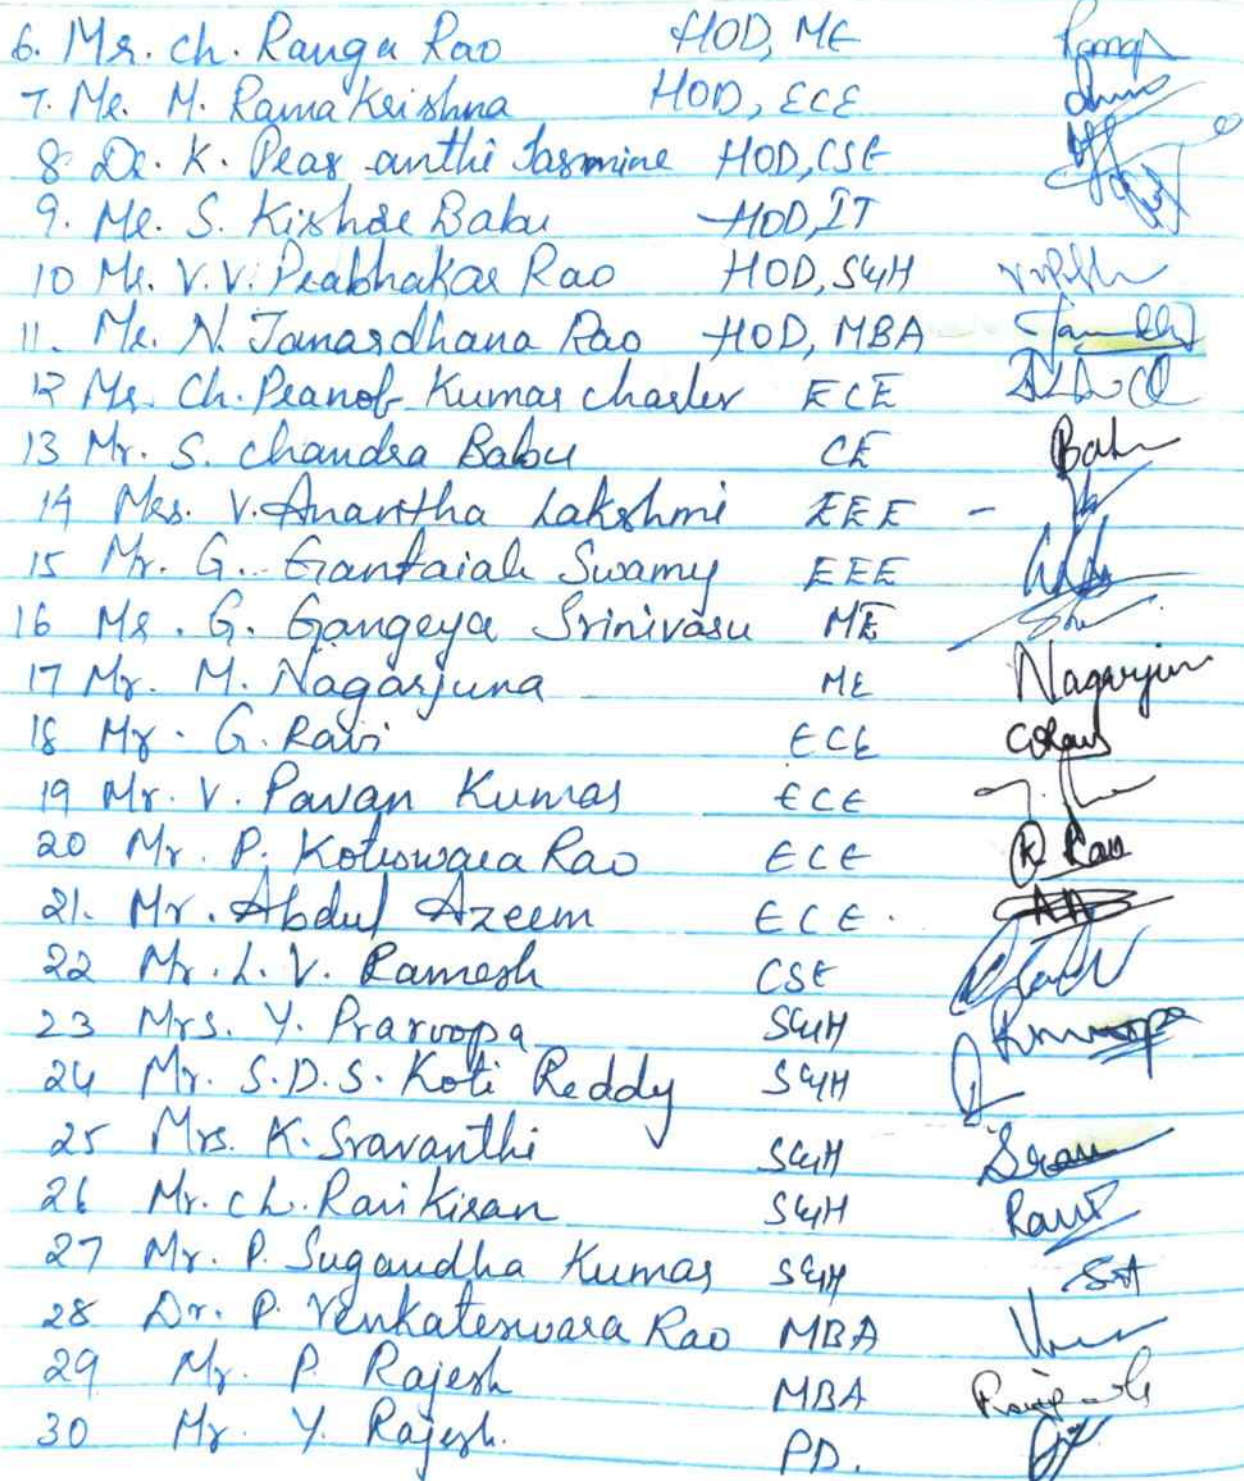 6. Mr. Ch. Ranga Rao HOD, ME
7. Mr. M. Rama Krishna HOD, ECE
8 Dr. K. Prasanthi Jasmine HOD, CSE
9. Mr. S. Kishore Babu HOD, IT
10 Mr. V.V. Prabhakar Rao HOD, S&H
11. Mr. N. Janardhana Rao HOD, MBA
12 Mr. Ch. Pranob Kumar Charles ECE
13 Mr. S. Chandra Babu CE Babu
14 Mrs. V. Anantha Lakshmi EEE -
15 Mr. G. Gantaiah Swamy EEE
16 Mr. G. Gangeya Srinivasu ME
17 Mr. M. Nagarjuna ME Nagarjun
18 Mr. G. Ravi ECE
19 Mr. V. Pavan Kumar ECE
20 Mr. P. Koteswara Rao ECE K Rao
21. Mr. Abdul Azeem ECE.
22 Mr. L. V. Ramesh CSE
23 Mrs. Y. Praroopa S&H
24 Mr. S.D.S. Koti Reddy S&H
25 Mrs. K. Sravanthi S&H
26 Mr. Ch. Ravi Kiran S&H Ravi
27 Mr. P. Sugandha Kumar S&H
28 Dr. P. Venkateswara Rao MBA
29 Mr. P. Rajesh MBA
30 Mr. Y. Rajesh. PD.